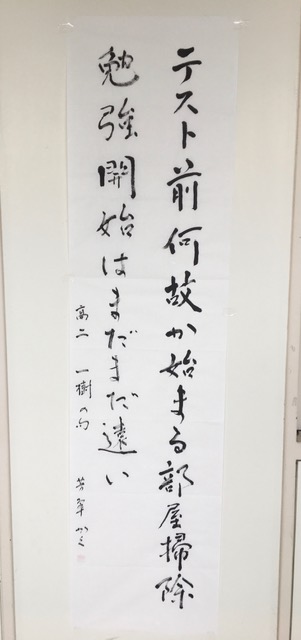 テスト前何故か始まる部屋掃除
勉強開始はまだまだ遠い
高二 一樹の句
芳翠かく